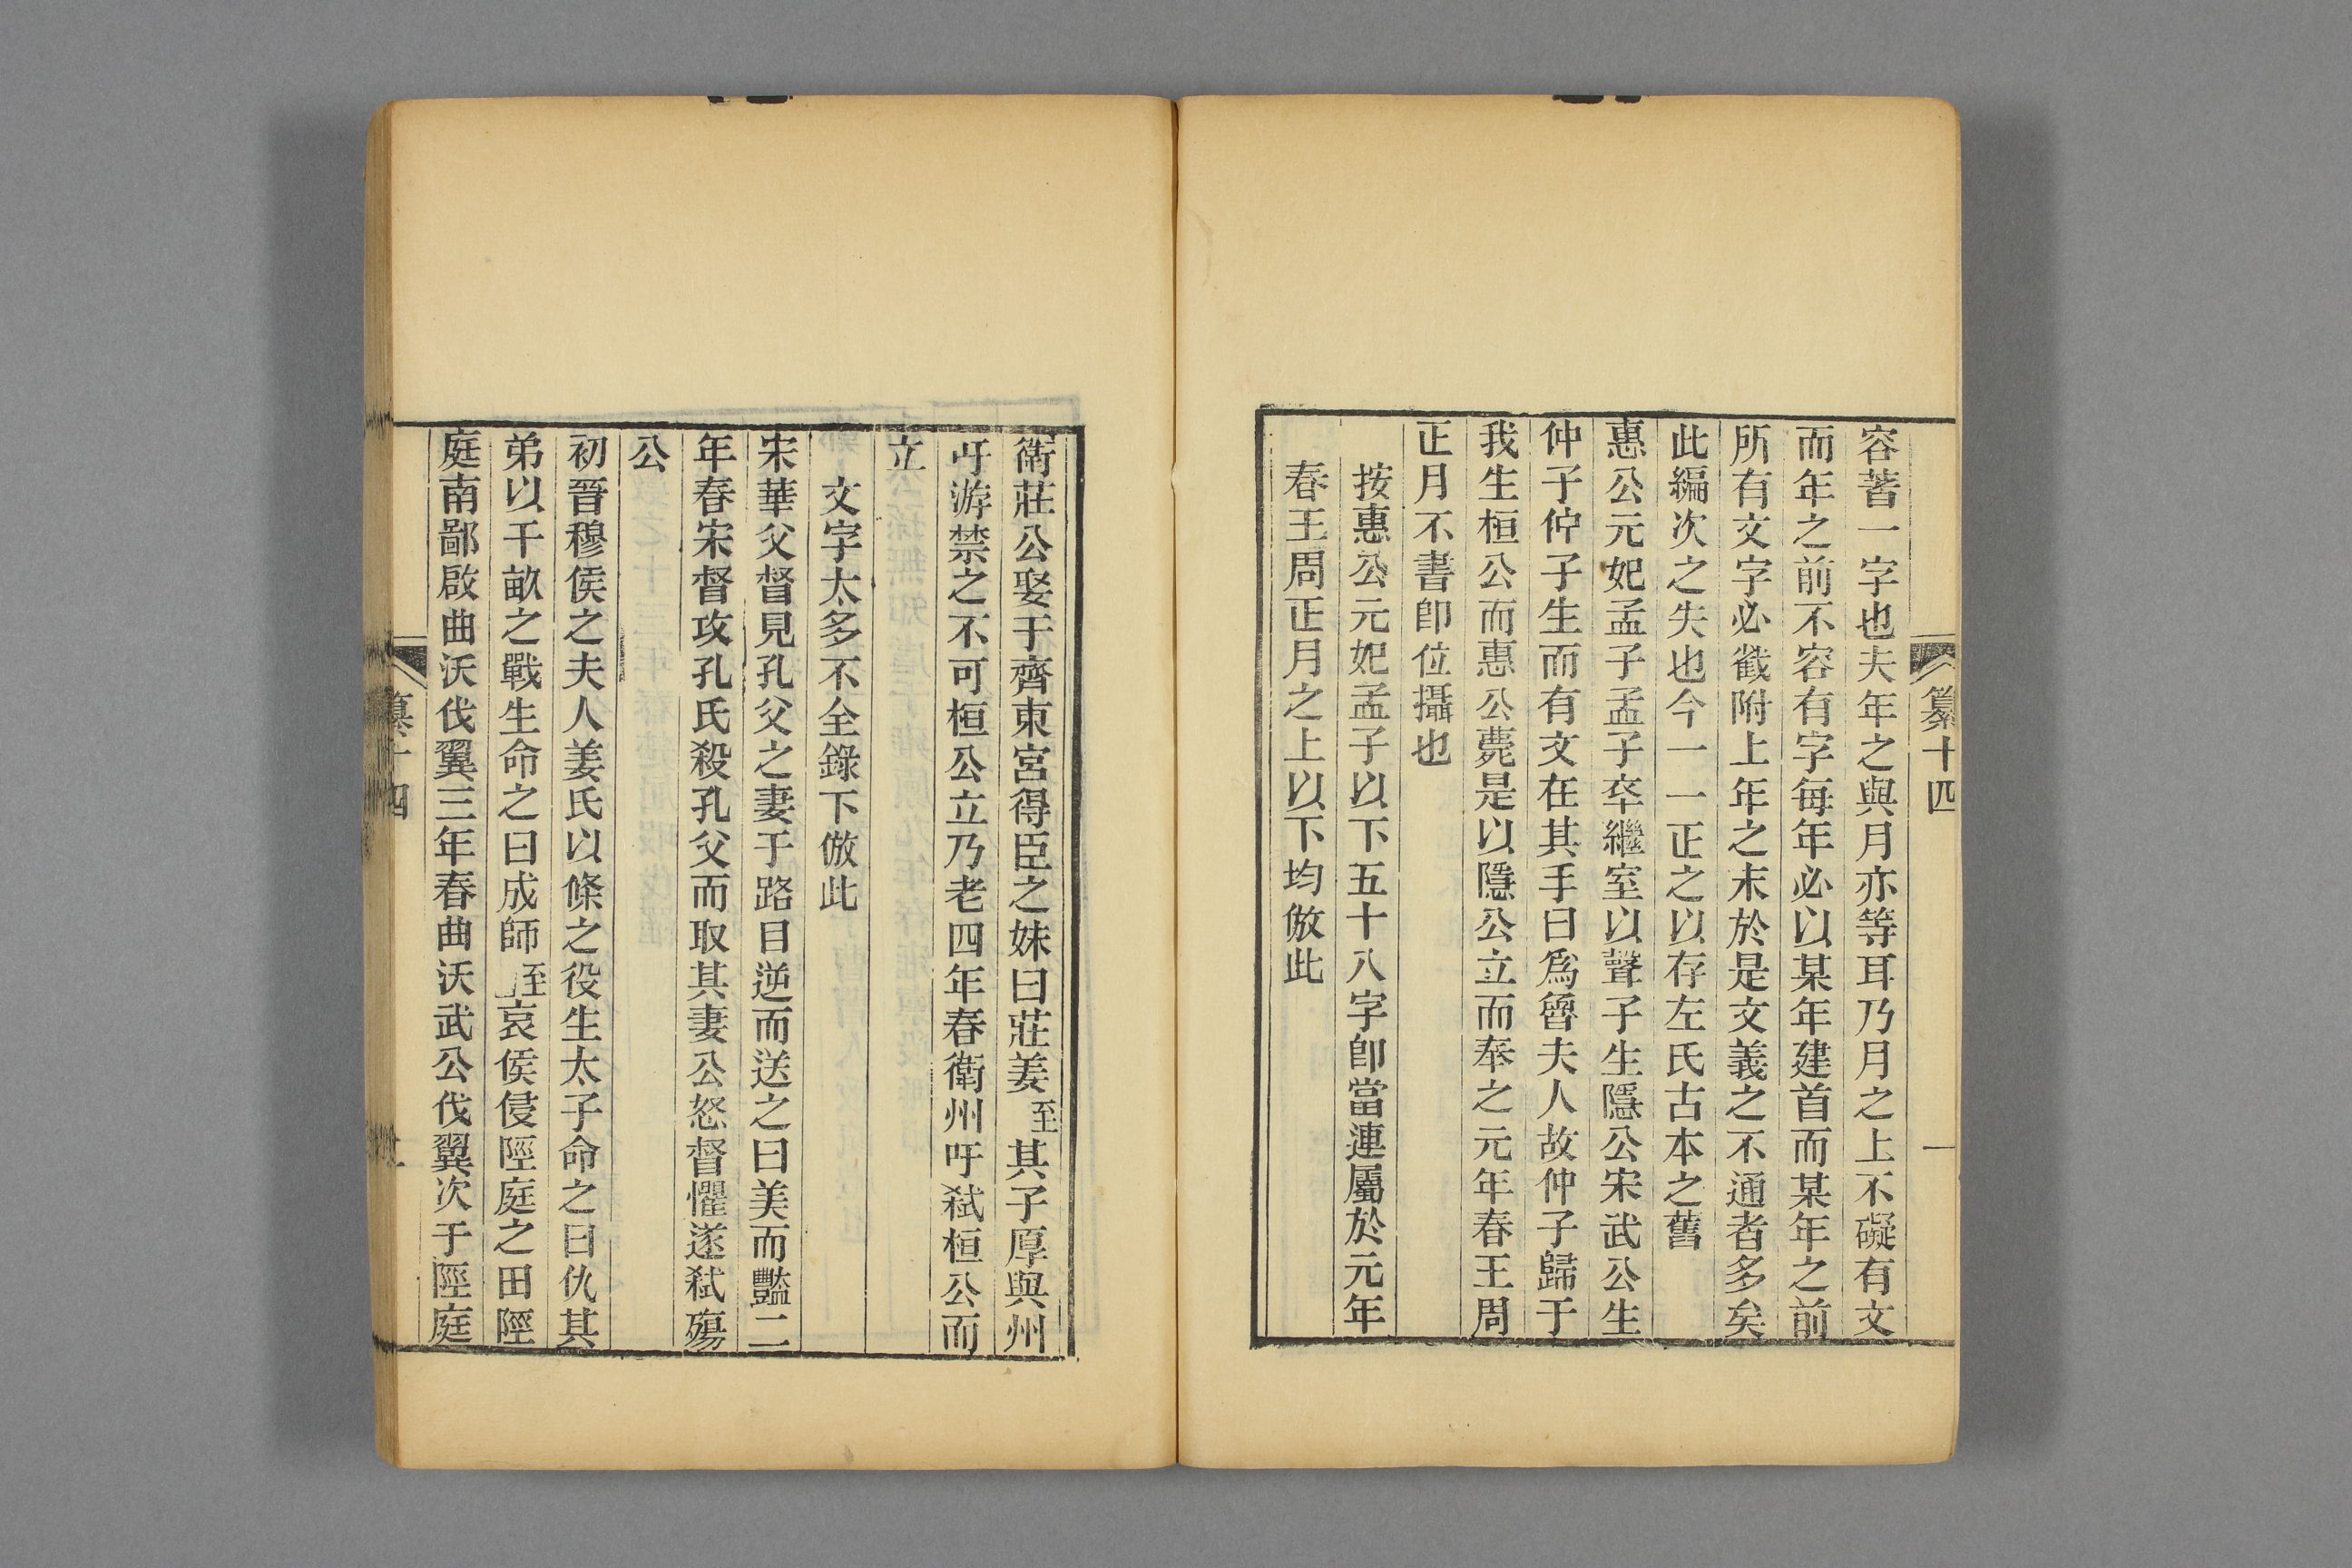 纂十四
一
容著一字也夫年之與月亦等耳乃月之上不礙有文
而年之前不容有字每年必以某年建首而某年之前
所有文字必截附上年之末於是文義之不通者多矣
此編次之失也今一一正之以存左氏古本之舊
惠公元妃孟子孟子卒繼室以聲子生隱公宋武公生
仲子仲子生而有文在其手曰爲魯夫人故仲子歸于
我生桓公而惠公薨是以隱公立而奉之元年春王周
正月不書卽位攝也
按惠公元妃孟子以下五十八字卽當連屬於元年
春王周正月之上以下均倣此
衛莊公娶于齊東宮得臣之妹曰莊姜至其子厚與州
吁游禁之不可桓公立乃老四年春衛州吁弒桓公而
立
文字太多不全錄下倣此
宋華父督見孔父之妻于路目逆而送之曰美而豔二
年春宋督攻孔氏殺孔父而取其妻公怒督懼遂弒殤
公
初晉穆侯之夫人姜氏以條之役生太子命之曰仇其
弟以千畝之戰生命之曰成師至哀侯侵陘庭之田陘
庭南鄙啟曲沃伐翼三年春曲沃武公伐翼次于陘庭
纂十四